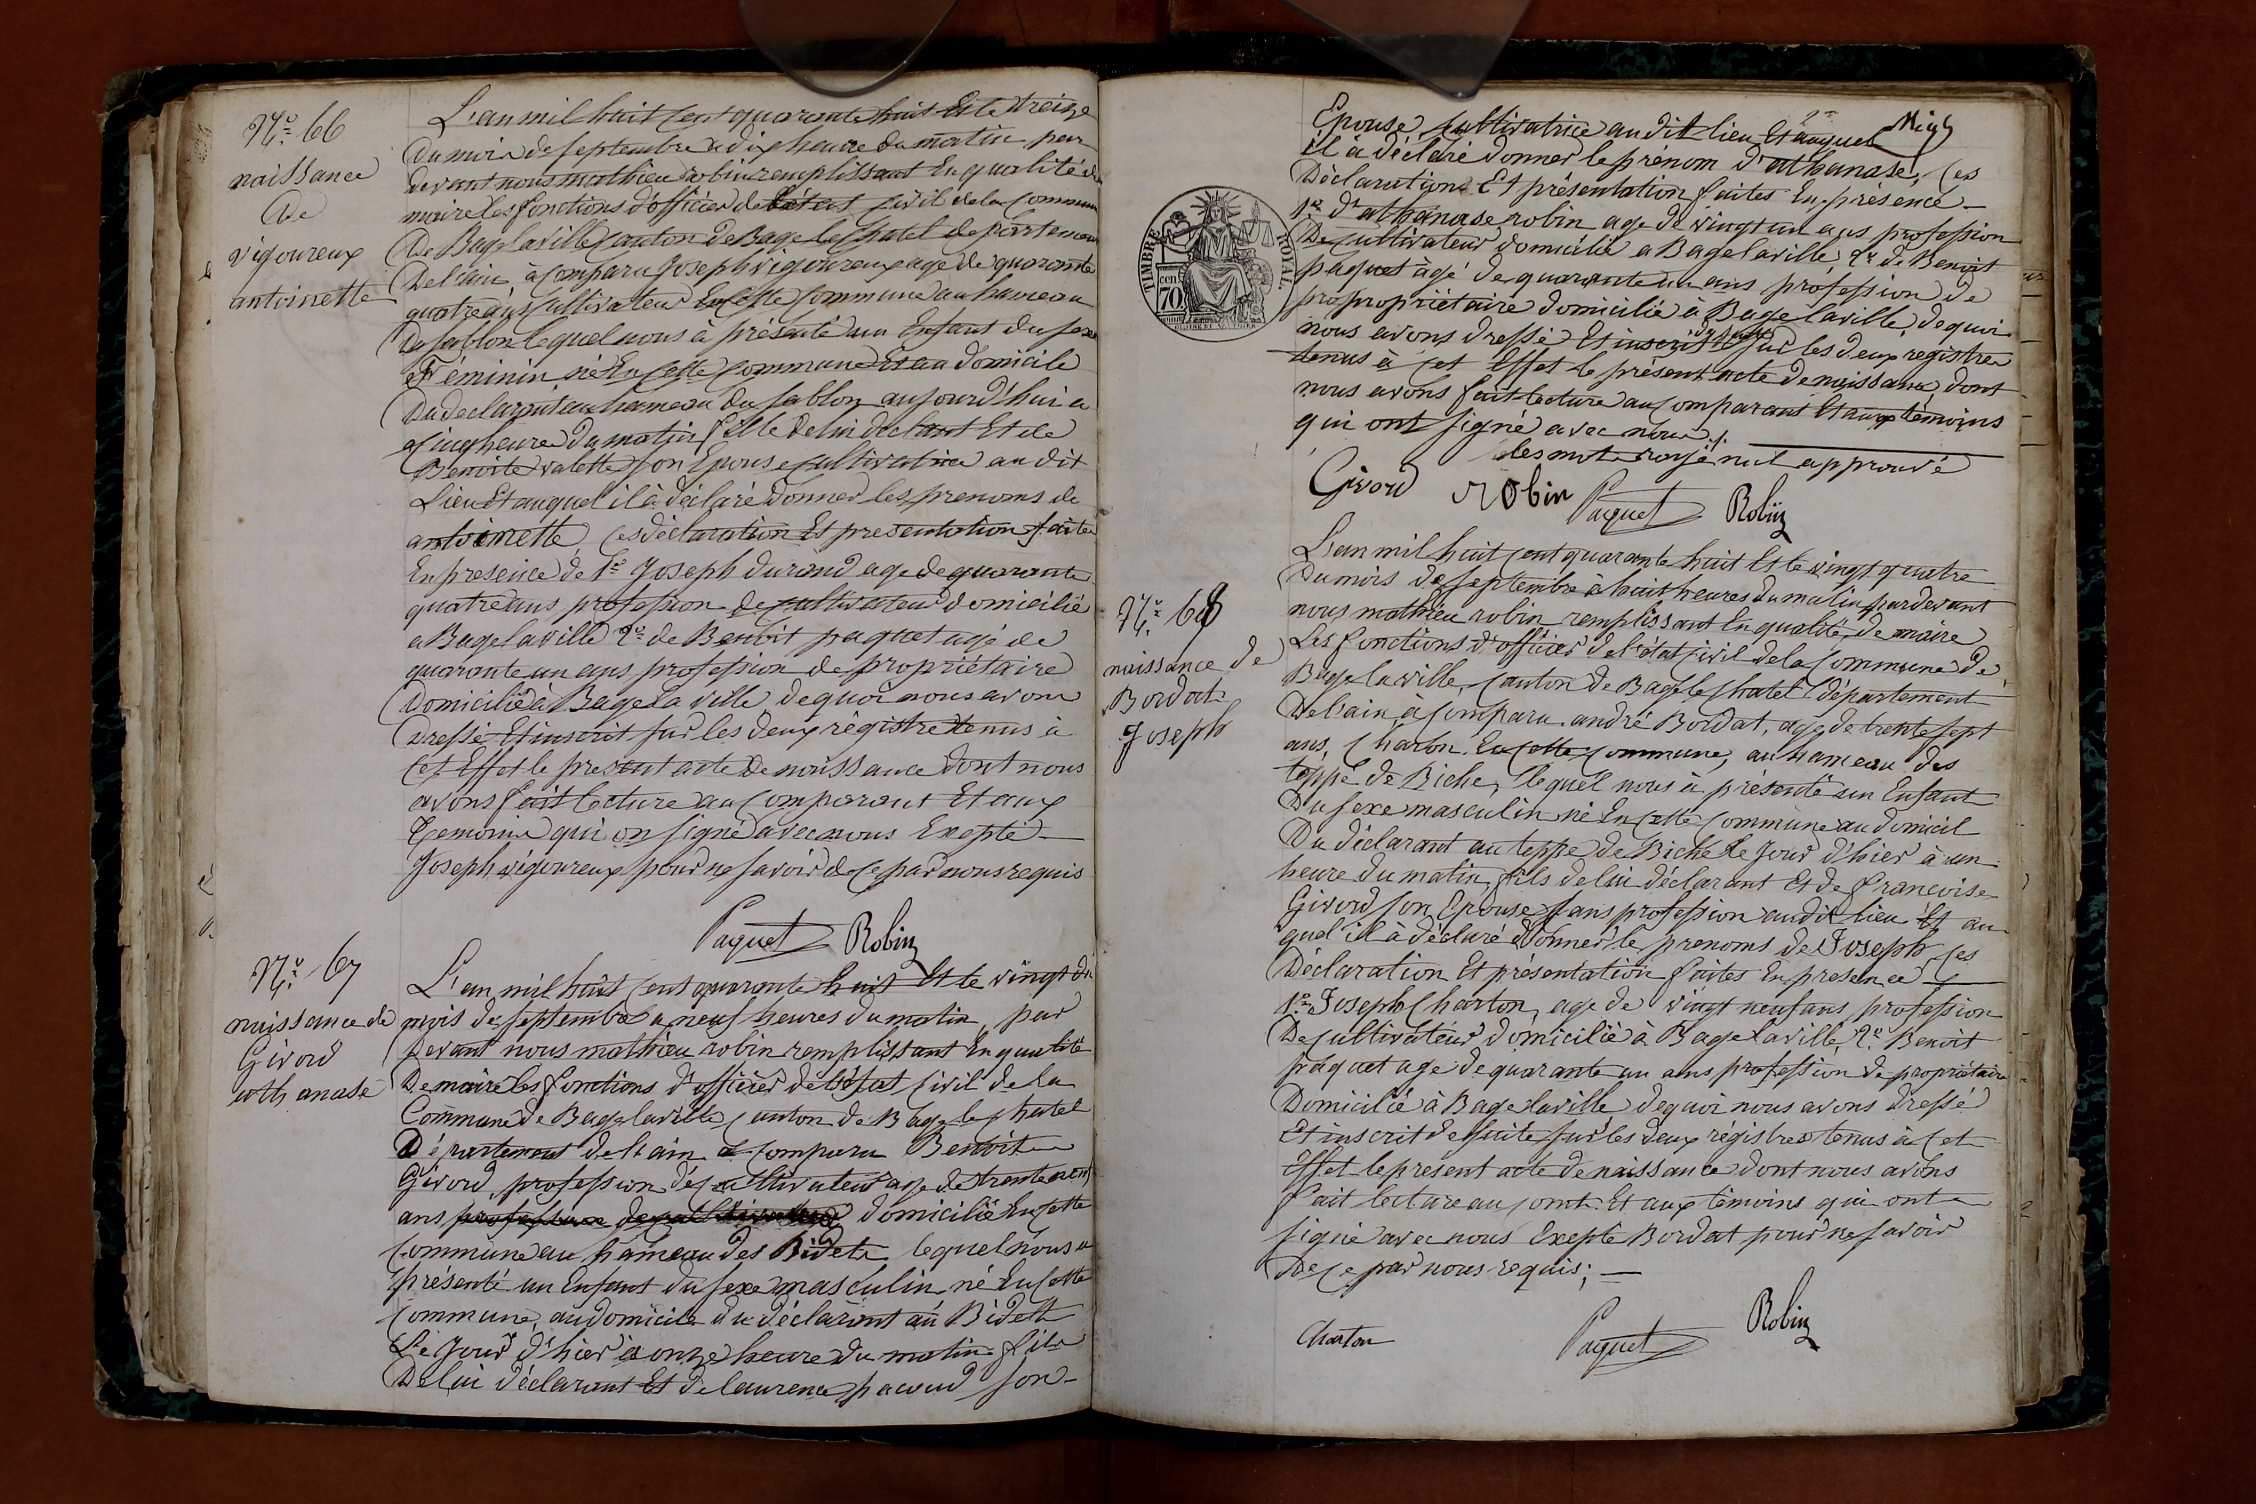 N.° 66
naissance
de
vigoureux
antoinette
L'an mil huit cent quarante huit Et le treize
du mois de septembre à dix heure du matin par
devant nous mathieu robin remplissant En qualité de
maire les fonctions d'officier de L'état civil de la commune
De Bagelaville canton de Bagé le Chatel departement
De l'ain à comparu Joseph vigoureux age de quarante
quatre ans cultivateur En cette commune au hameau
De sablon lequel nous à présenté un Enfant du sexe
Féminin né En cette commune Et au domicile
Du declarant au hameau du sablon aujourd'hui a
cinq heure du matin fille de lui declant Et de
Benoite valette son Epouse cultivatrice au dit
Lieu Et auquel il à déclaré donner les prenoms de
antoinette ces déclaration Et presentation faites
En presence de 1.er Joseph durand age de quarante
quatre ans profession de cultivateur domicilié
a Bagelaville 2.e de Benoit paquet agé de
quarante un ans profession de propriétaire
Domicilié à Bagé La ville de quoi nous avons
Dressé Et inscrit sur les deux régistre tenus à
cet Effet le present acte de naissance dont nous
avons fait lecture au comparant Et aux
Temoins qui on signé avec nous Exepté
Joseph vigoureux pour ne savoir de ce par nous requis
Paquet Robin
N.° 67
naissance de
Givord
athanase
L'an mil huit cent quarante huit Et le vingt du
mois de septembre a neuf heures du matin par
Devant nous mathieu robin remplissant En qualité
De maire les fonctions d'officier de l'état civil de la
Commune de Bagelaville canton de Bagé le chatel
Département de l'ain à comparu Benoit
Givord profession de cultivateur age de trente
ans profession de cultivateur domicilié En cette
commune au hameau des Bidets lequel nous a
présenté un Enfant du sexe masculin né En cette
commune, au domicile du déclarant au Bidets
Le Jour d'hier à onze heure du matin fils
De lui déclarant Et de laurence pacoud son
Epouse cultivatrice au dit lieu Et auquel
il à déclaré donner le prénom d'athanase, ces
Déclaration Et présentation faites En présence
1.er d'athanase robin age de vingt un ans profession
De cultivateur domicilié a Bagelaville, 2.e de Benoit
paquet âgé de quarante un ans profession de
propropriétaire domicilié à Bagelaville, de quoi
nous avons dressé Et inscrit de suite sur les deux registre
tenus à cet Effet le présent acte de naissance, dont
nous avons fait lecture au comparant Et aux témoins
qui ont signé avec nous ./.
les mots rayé nul approuvé
Givord robin Paquet Robin
TIMBRE ROYAL
70
N.° 68
naissance de
Bordat
Joseph
L'an mil huit cent quarante huit Et le vingt quatre
Du mois de septembre à huit heures du matin par devant
nous mathieu robin remplissant En qualité de maire
Les fonctions d'officier de l'état civil de la commune de
Bagelaville, canton de Bagé le chatel département
De l'ain à comparu andré Bordat, age de trente sept
ans, charon En cette commune, au hameau des
teppe de Biche, lequel nous à présenté un Enfant
Du sexe masculin né En cette commune au domicil
Du déclarant au teppe de Biche Le Jour d'hier à un
heure du matin, fils de lui déclarant Et de francoise
Givord son Epouse sans profession audit lieu Et au
quel il à déclaré donner le prenoms de Joseph ces
Déclaration Et présentation faites En presence
1.er Joseph Charton, age de vingt neuf ans profession
De cultivateur domicilié à Bagelaville, 2.e Benoit
paquet age de quarante un ans profession de propriétaire
Domicilié à Bagelaville de quoi nous avons dressé
Et inscrit de suite sur les deux régistres tenus à cet
Effet le présent acte de naissance dont nous avons
fait lecture au comt. Et aux témoins qui ont
signé avec nous Exepté Bordat pour ne savoir
De ce par nous requis;
Charton Paquet Robin